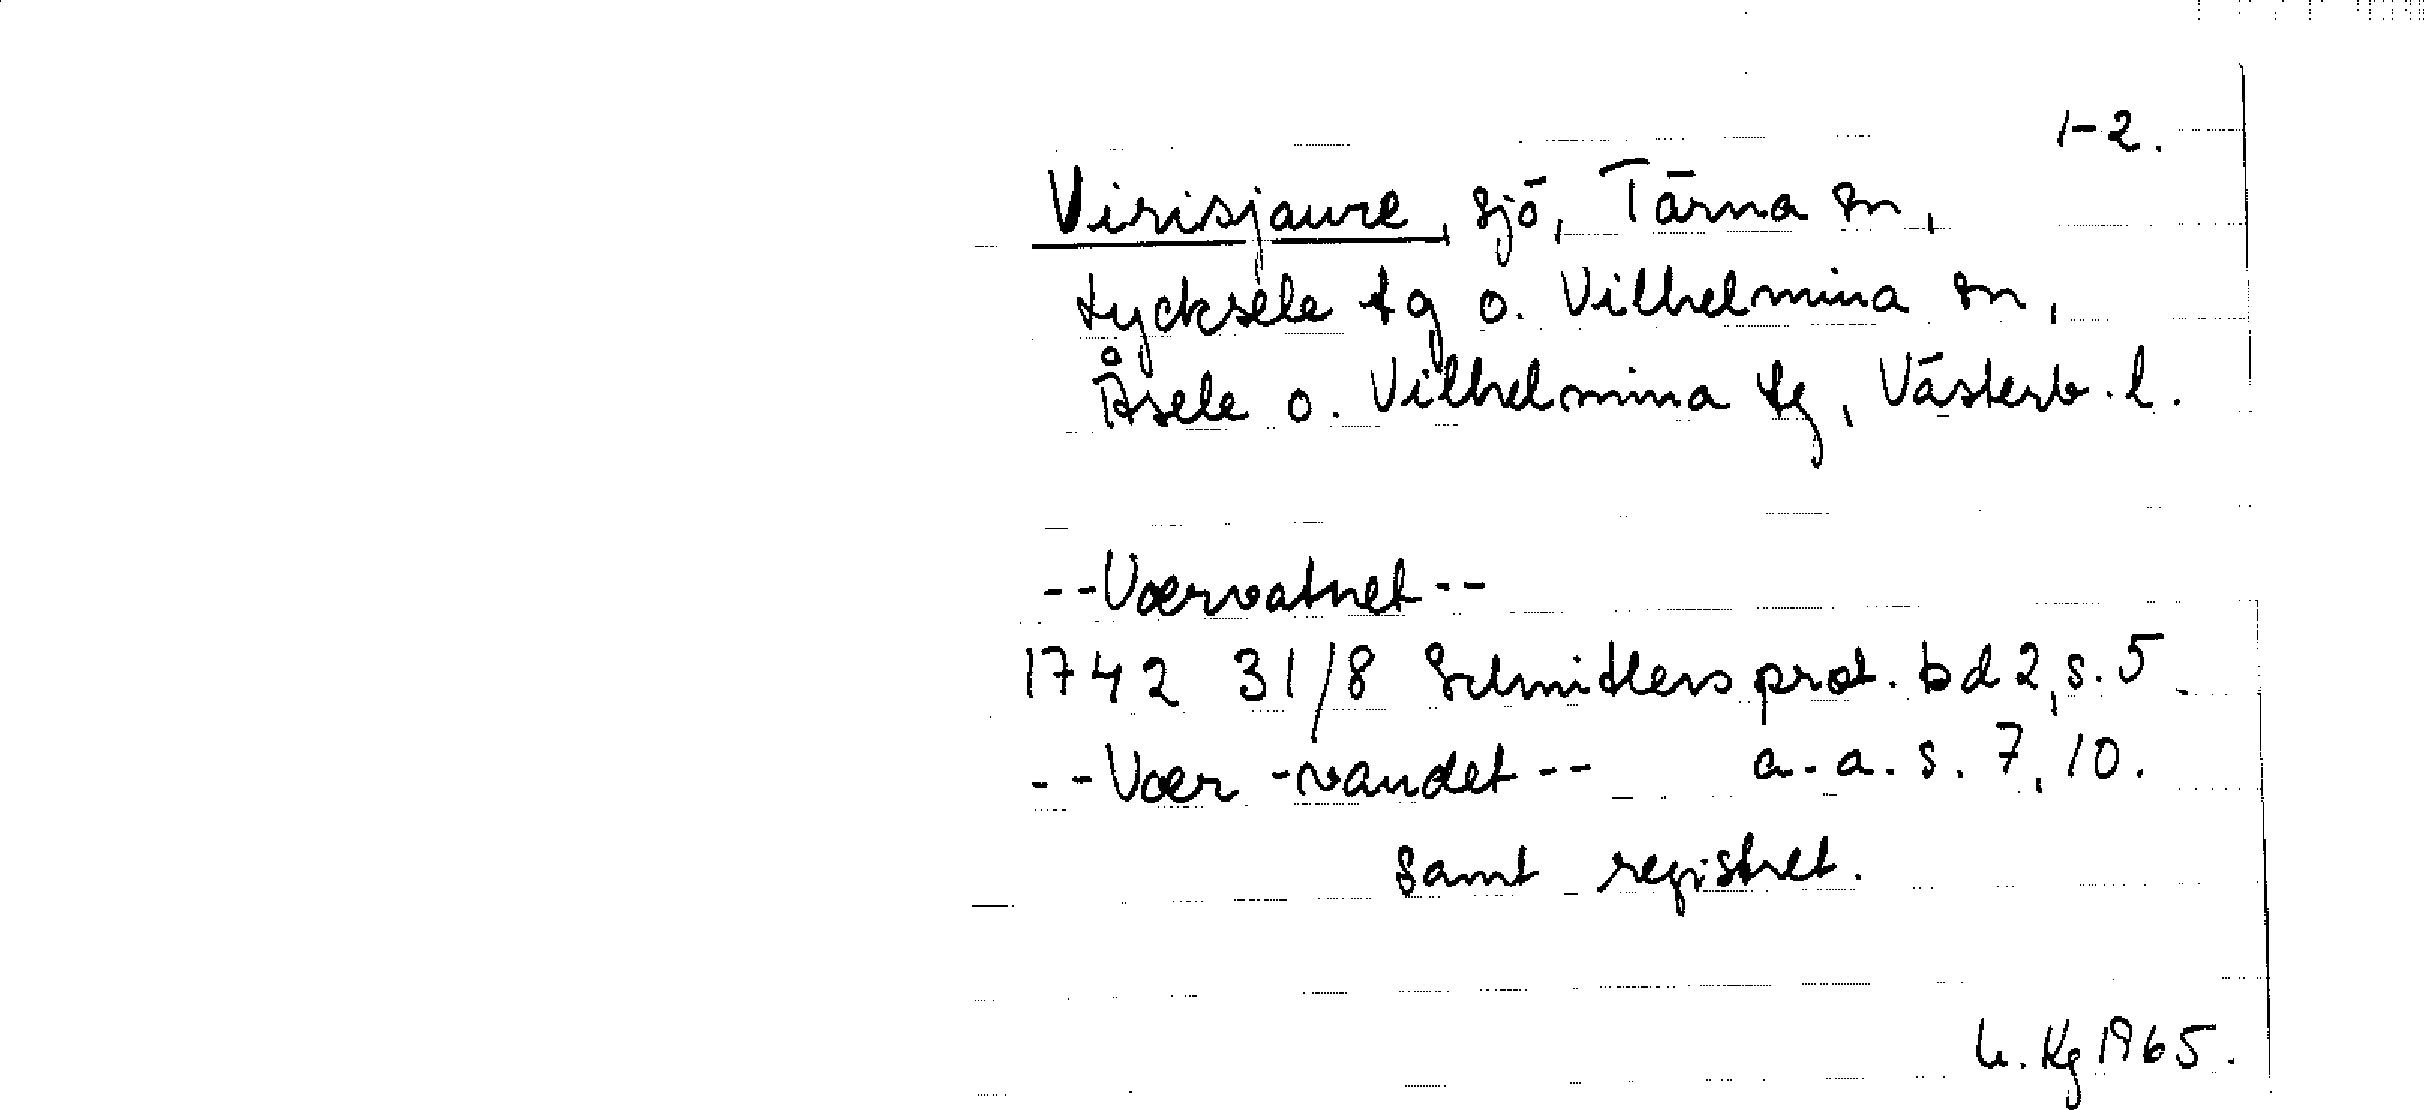 1-2.
Virisjaure, sjö, Tärna sn,
Lycksele tg o. Vilhelmina sn,
Åsele o. Vilhelmina tg, Västerb. l.
--Værvatnet--
1742 31/8 Schnitlers prot. bd 2, s. 5
--Vær-vandet-- a. a. s. 7, 10.
samt registret.
U. Kg 1965.